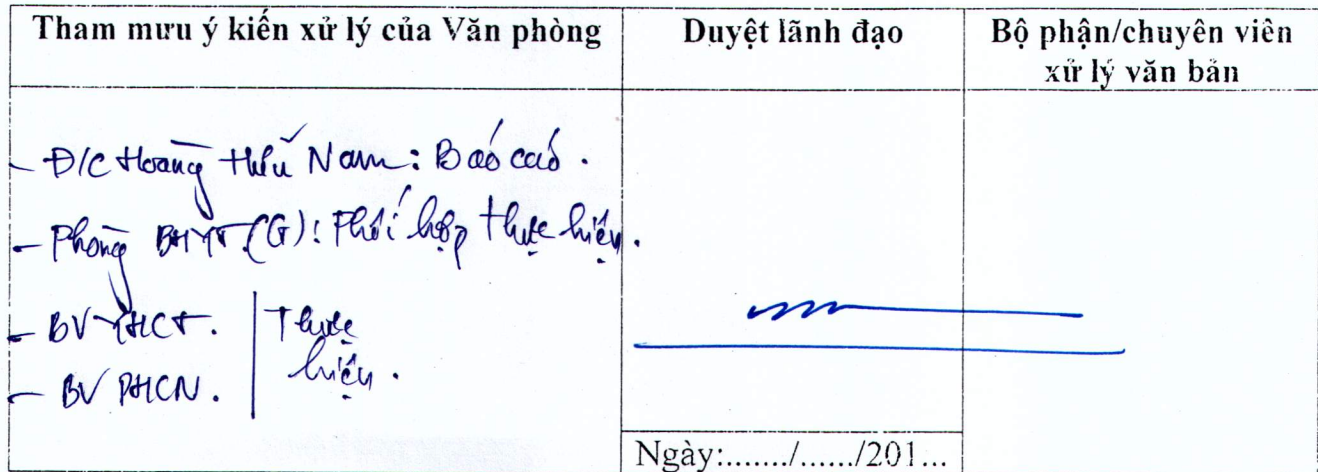 Tham mưu ý kiến xử lý của Văn phòng
Duyệt lãnh đạo
Bộ phận/chuyên viên
xử lý văn bản
- Đ/C Hoàng Hữu Nam: Báo cáo.
- Phòng BHYT (G): Phối hợp thực hiện.
- BV YHCT. | Thực
hiện.
- BV PHCN.
Ngày:......./....../201...